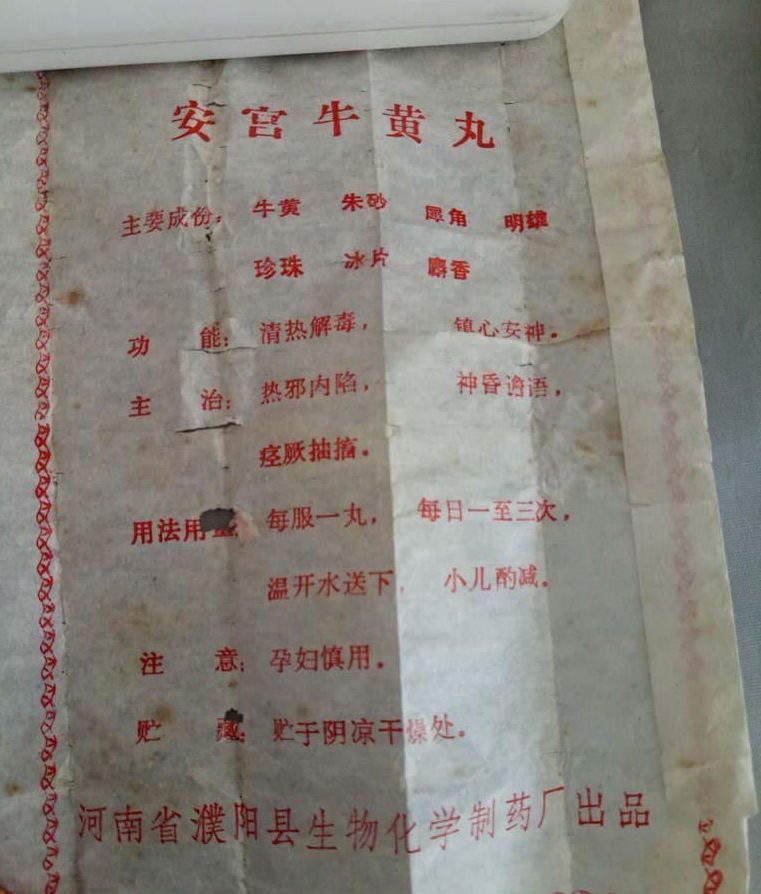 安宫牛黄丸
主要成份：牛黄 朱砂 犀角 明雄
珍珠 冰片 麝香
功 能：清热解毒， 镇心安神。
主 治：热邪内陷， 神昏谵语，
痉厥抽搐。
用法用量：每服一丸， 每日一至三次，
温开水送下， 小儿酌减。
注 意：孕妇慎用。
贮 藏：贮于阴凉干燥处。
河南省濮阳县生物化学制药厂出品